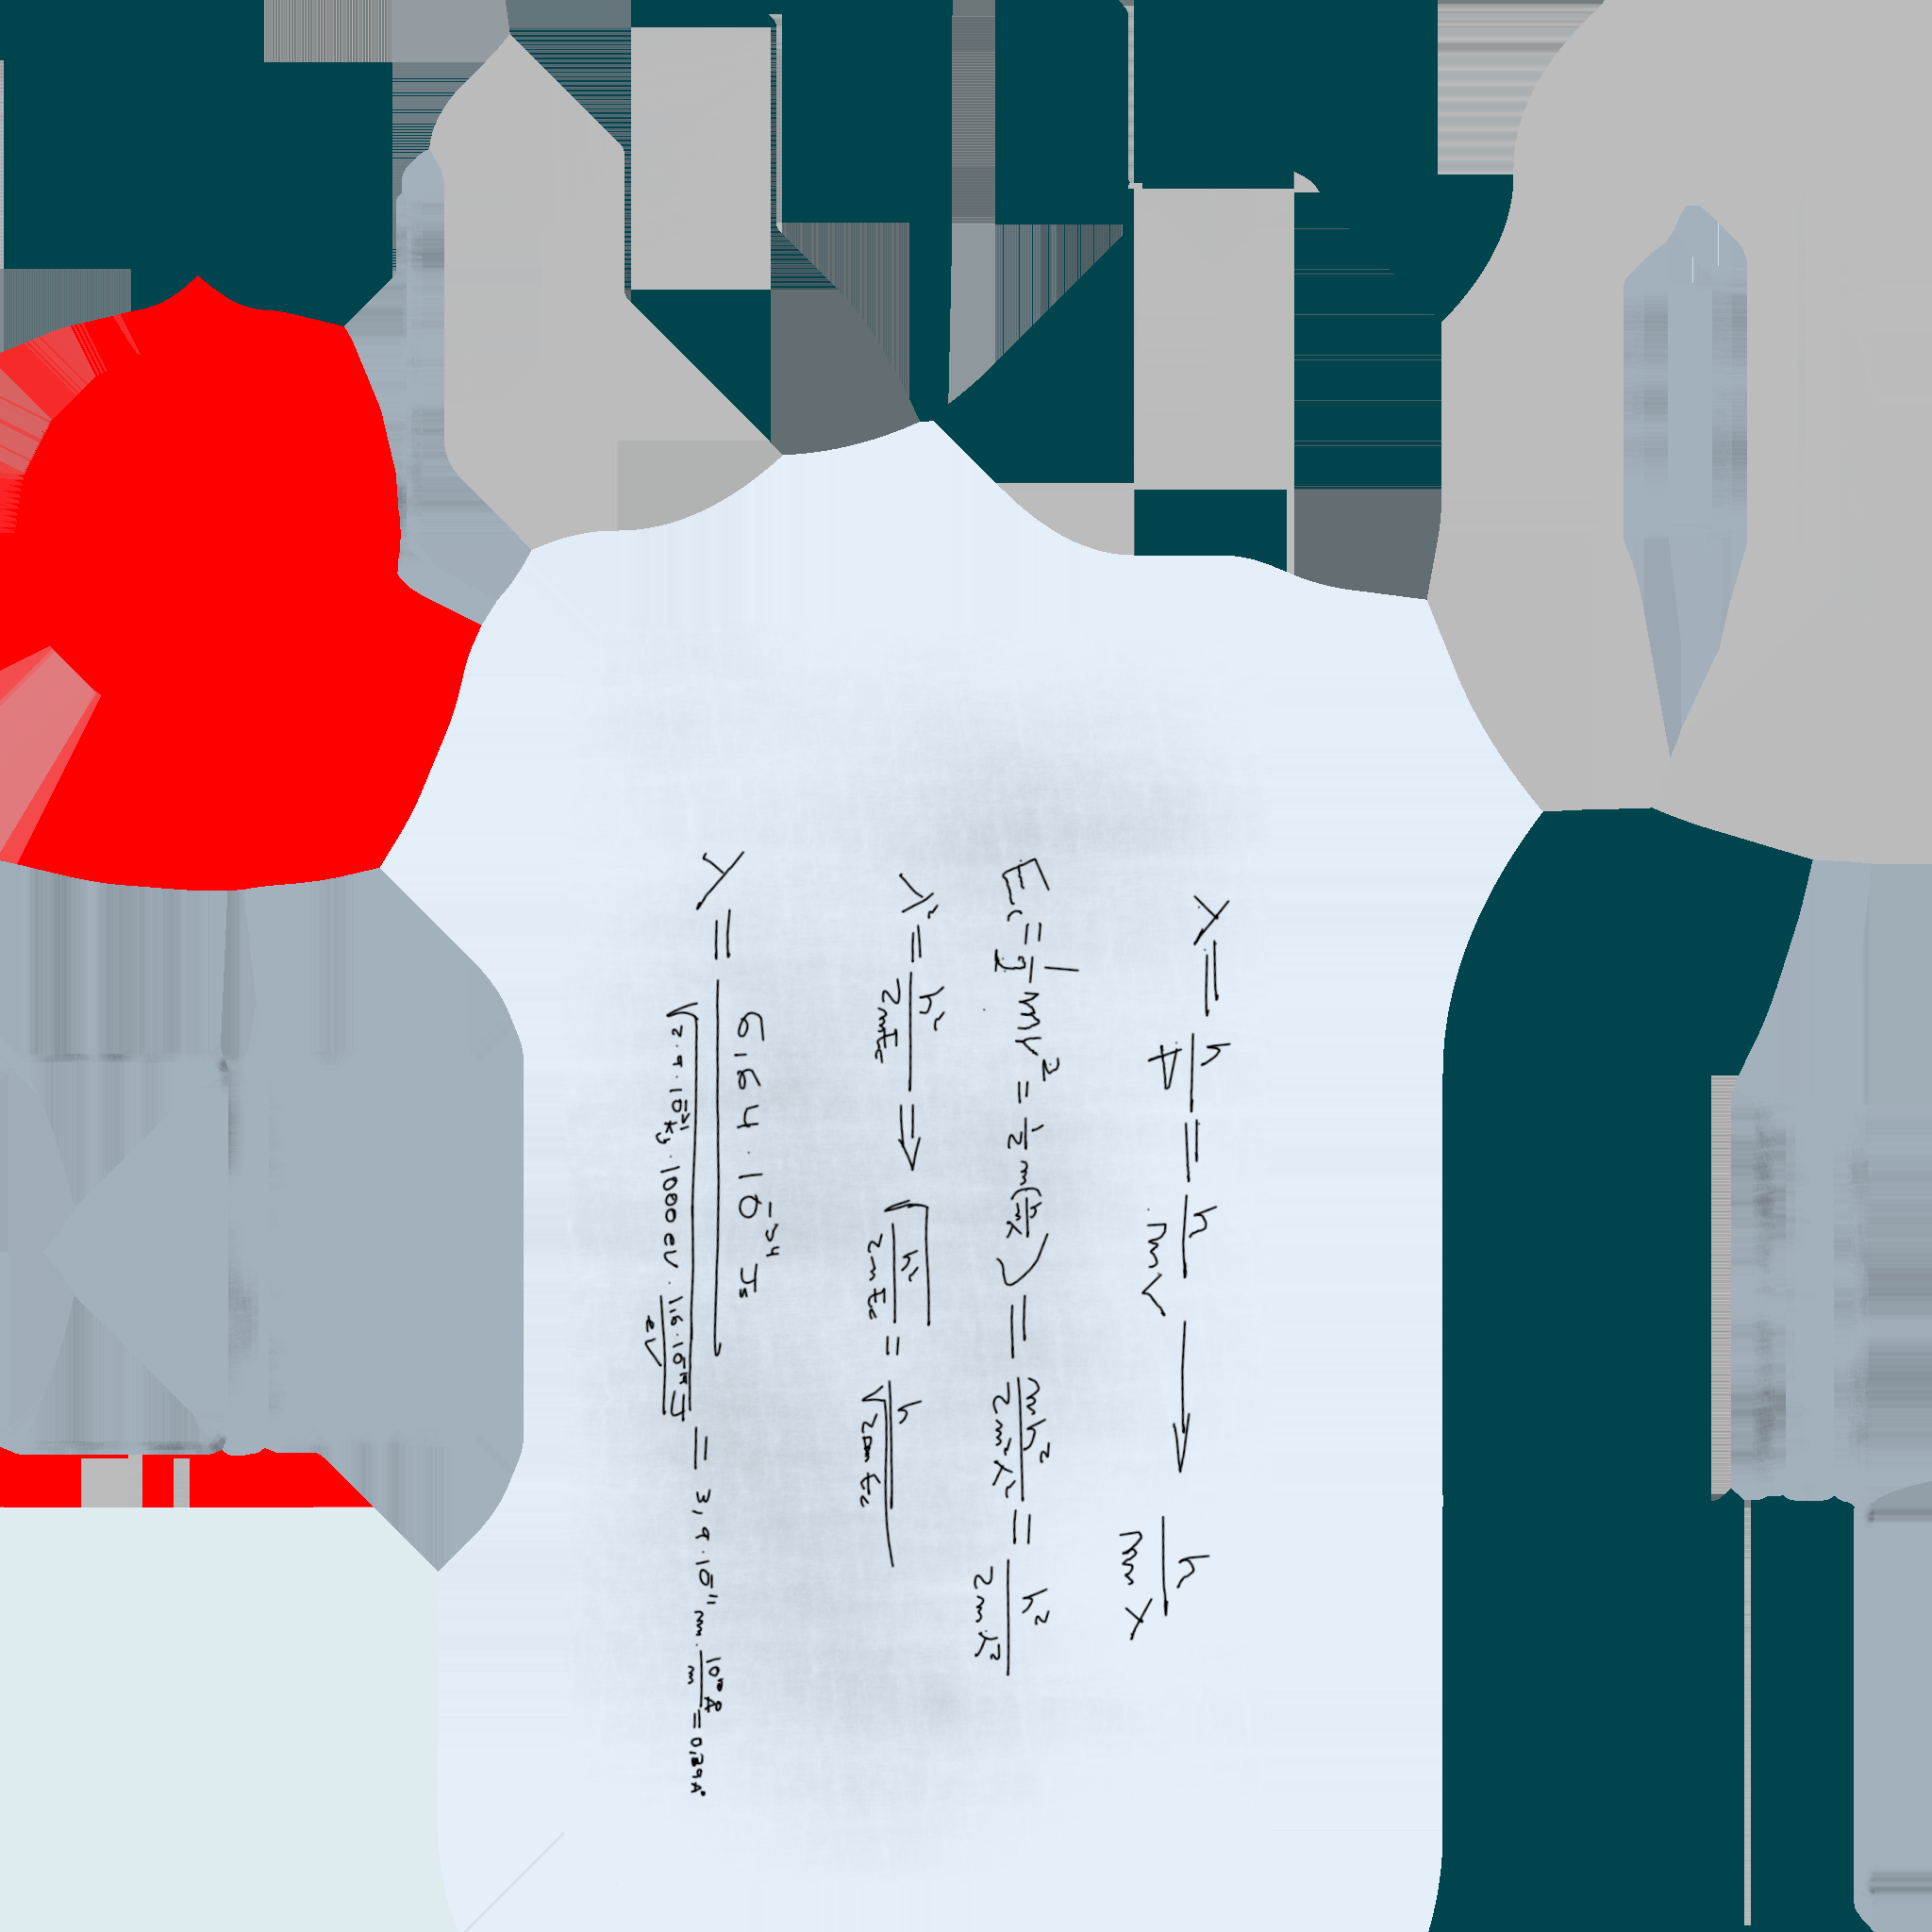 λ = h/p = h/mv → h/mλ
Ec = 1/2 mv² = 1/2 m(h/mλ)² = mh²/2m²λ² = h²/2mλ²
λ² = h²/2mEc ⇒ √(h²/2mEc) = h/√(2mEc)
λ = 6,64 · 10⁻³⁴ Js / √(2 · 9 · 10⁻³¹ kg · 1000 eV · 1,6 · 10⁻¹⁹ J/eV) = 3,9 · 10⁻¹¹ m · 10¹⁰ Å/m = 0,39 A°